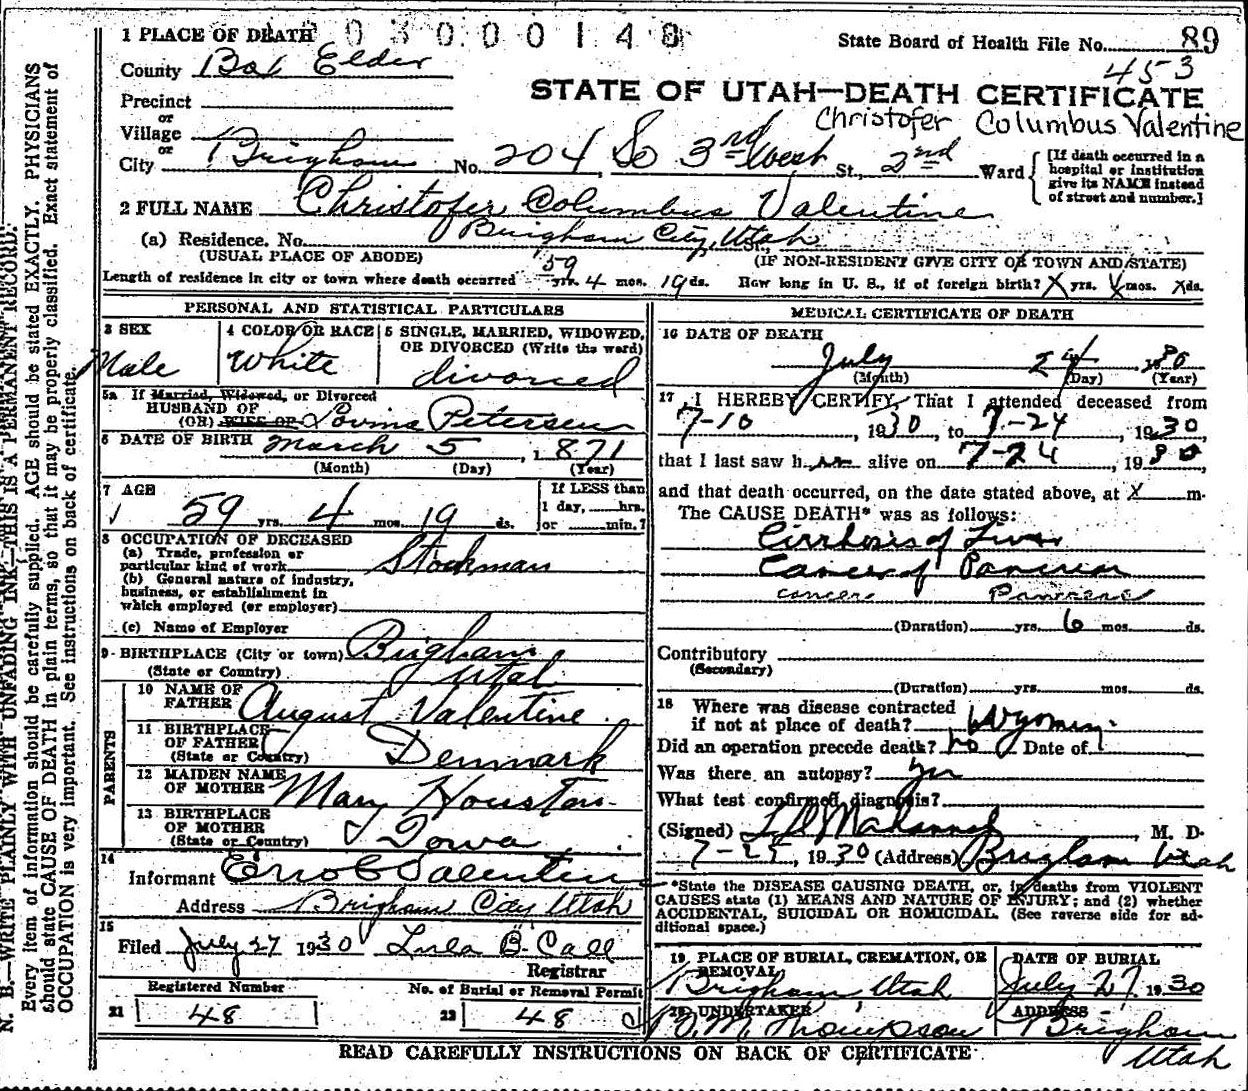 1 PLACE OF DEATH 0 3 0 0 0 0 1 4 8
State Board of Health File No. 89
County Box Elder
453
STATE OF UTAH—DEATH CERTIFICATE
Precinct
or
Village
or
Christofer Columbus Valentine
City Brigham No. 204 So 3rd West St., 2nd Ward
[If death occurred in a hospital or institution give its NAME instead of street and number.]
2 FULL NAME Christofer Columbus Valentine
(a) Residence. No. Brigham City, Utah St.,
(USUAL PLACE OF ABODE) (IF NON-RESIDENT GIVE CITY OR TOWN AND STATE)
Length of residence in city or town where death occurred 59 yrs. 4 mos. 19 ds. How long in U. S., if of foreign birth? X yrs. X mos. x ds.
PERSONAL AND STATISTICAL PARTICULARS
3 SEX
Male
4 COLOR OR RACE
White
5 SINGLE, MARRIED, WIDOWED, OR DIVORCED (Write the word)
divorced
5a If Married, Widowed, or Divorced
HUSBAND OF
(OR) WIFE OF Petersen
6 DATE OF BIRTH March 5, 1871
(Month) (Day) (Year)
7 AGE
59 yrs. 4 mos. 19 ds.
If LESS than 1 day, hrs. or min.?
8 OCCUPATION OF DECEASED
(a) Trade, profession or particular kind of work Stockman
(b) General nature of industry, business, or establishment in which employed (or employer)
(c) Name of Employer
9 BIRTHPLACE (City or town) Brigham
(State or Country) Utah
PARENTS
10 NAME OF FATHER August Valentine
11 BIRTHPLACE OF FATHER (State or Country) Denmark
12 MAIDEN NAME OF MOTHER Mary Houston
13 BIRTHPLACE OF MOTHER (State or Country) Iowa
14
Informant Valentine
Address Brigham City Utah
15
Filed July 27 1930 Lula B. Call
Registrar
Registered Number
21 48
No. of Burial or Removal Permit
22 48
MEDICAL CERTIFICATE OF DEATH
16 DATE OF DEATH
July 24 1930
(Month) (Day) (Year)
17 I HEREBY CERTIFY, That I attended deceased from
7-10, 1930, to 7-24, 1930,
that I last saw him alive on 7-24, 1930,
and that death occurred, on the date stated above, at X m.
The CAUSE DEATH* was as follows:
Cirrhosis of Liver
Cancer of Pancreas
cancer Pancreas
(Duration) yrs. 6 mos. ds.
Contributory
(Secondary)
(Duration) yrs. mos. ds.
18 Where was disease contracted
if not at place of death? Wyoming
Did an operation precede death? no Date of
Was there an autopsy? yes
What test confirmed diagnosis?
(Signed) M. D.
7-25, 1930 (Address) Brigham Utah
*State the DISEASE CAUSING DEATH, or, in deaths from VIOLENT
CAUSES state (1) MEANS AND NATURE OF INJURY; and (2) whether
ACCIDENTAL, SUICIDAL OR HOMICIDAL. (See reverse side for ad-
ditional space.)
19 PLACE OF BURIAL, CREMATION, OR REMOVAL
Brigham, Utah
DATE OF BURIAL
July 27 1930
20 UNDERTAKER
M. Thompson
ADDRESS
Brigham
Utah
READ CAREFULLY INSTRUCTIONS ON BACK OF CERTIFICATE
N. B.—WRITE PLAINLY WITH UNFADING INK—THIS IS A PERMANENT RECORD.
Every item of information should be carefully supplied. AGE should be stated EXACTLY. PHYSICIANS
should state CAUSE OF DEATH in plain terms, so that it may be properly classified. Exact statement of
OCCUPATION is very important. See instructions on back of certificate.